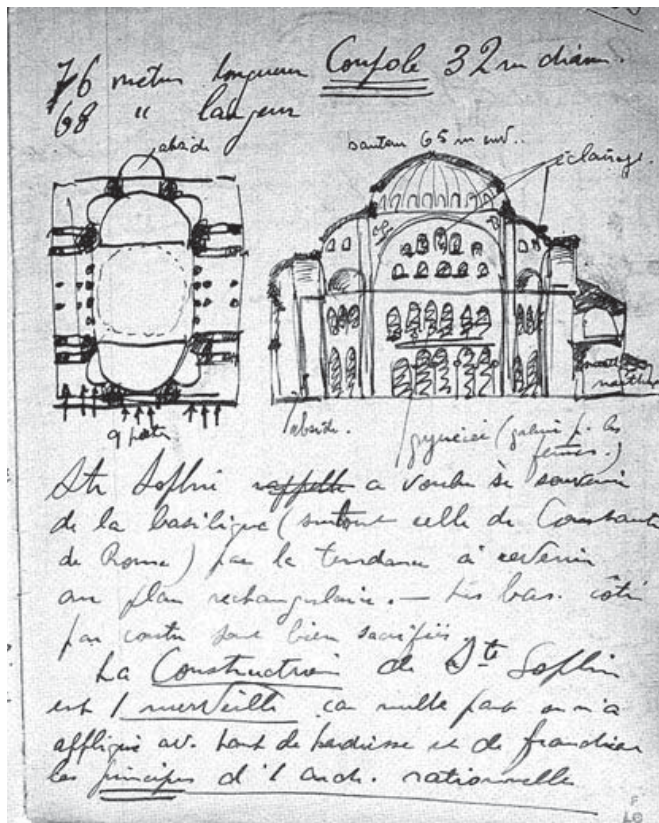 76 mètres longueur Coupole 32 m diam.
68 " largeur
abside
hauteur 65 m env..
éclairage.
9 portes
abside.
gynécée (galerie p. les
femmes.)
narthex
Ste Sophie rappelle a voulu se souvenir
de la basilique (surtout celle de Constantin
de Rome) par la tendance à revenir
au plan rechangulaire. — Les bas. côtés
par contre sont bien sacrifiés
La Construction de Ste Sophie
est 1 merveille car nulle part on n'a
affliqué av. tant de hardiesse et de franchise
les principes d'1 arch. rationnelle